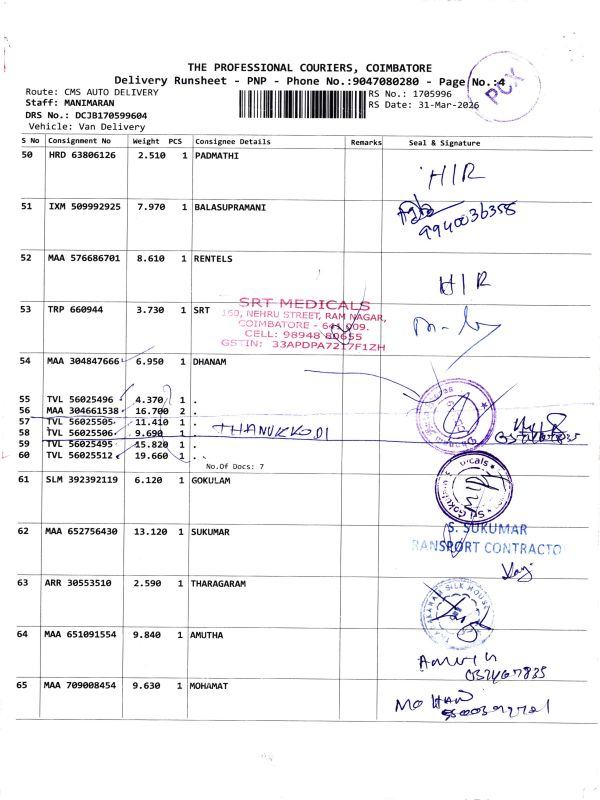 THE PROFESSIONAL COURIERS, COIMBATORE
Delivery Runsheet - PNP - Phone No.:9047080280 - Page No.:4
PCX
Route: CMS AUTO DELIVERY
RS No.: 1705996
Staff: MANIMARAN
RS Date: 31-Mar-2026
DRS No.: DCJB170599604
Vehicle: Van Delivery
S No Consignment No Weight PCS Consignee Details Remarks Seal & Signature
50 HRD 63806126 2.510 1 PADMATHI
H/R
51 IXM 509992925 7.970 1 BALASUPRAMANI
9940036358
52 MAA 576686701 8.610 1 RENTELS
H/R
53 TRP 660944 3.730 1 SRT
SRT MEDICALS
160, NEHRU STREET, RAM NAGAR,
COIMBATORE - 641 009.
CELL: 98948 80655
GSTIN: 33APDPA7217F1ZH
54 MAA 304847666 6.950 1 DHANAM
55 TVL 56025496 4.370 1 .
56 MAA 304661538 16.700 2 .
57 TVL 56025505 11.410 1 .
58 TVL 56025506 9.690 1 .
THANUKKODI
59 TVL 56025495 15.820 1 .
60 TVL 56025512 19.660 1 .
No.Of Docs: 7
61 SLM 392392119 6.120 1 GOKULAM
62 MAA 652756430 13.120 1 SUKUMAR
S. SUKUMAR
RANSPORT CONTRACTO
63 ARR 30553510 2.590 1 THARAGARAM
SILK HOUSE
64 MAA 651091554 9.840 1 AMUTHA
65 MAA 709008454 9.630 1 MOHAMAT